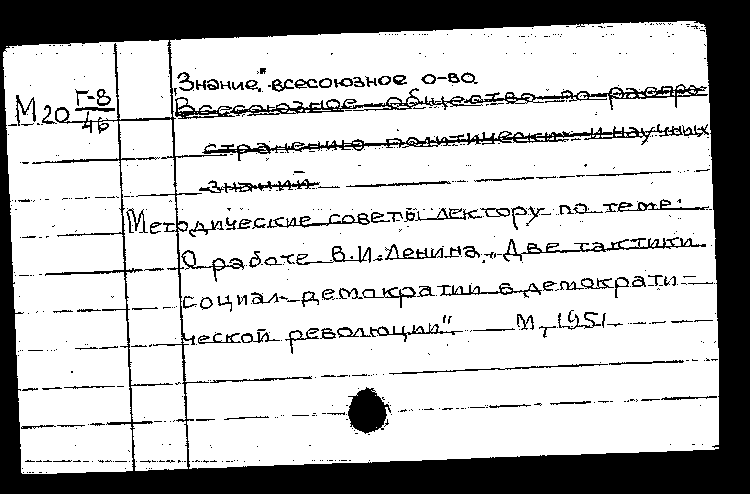 "Знание," всесоюзное о-во.
М20 Г-8/46
Всесоюзное общество по распро-
странению политических и научных
знаний
Методические советы лектору по теме:
О работе В.И.Ленина „Две тактики
социал-демократии в демократи-
ческой революции". М., 1951